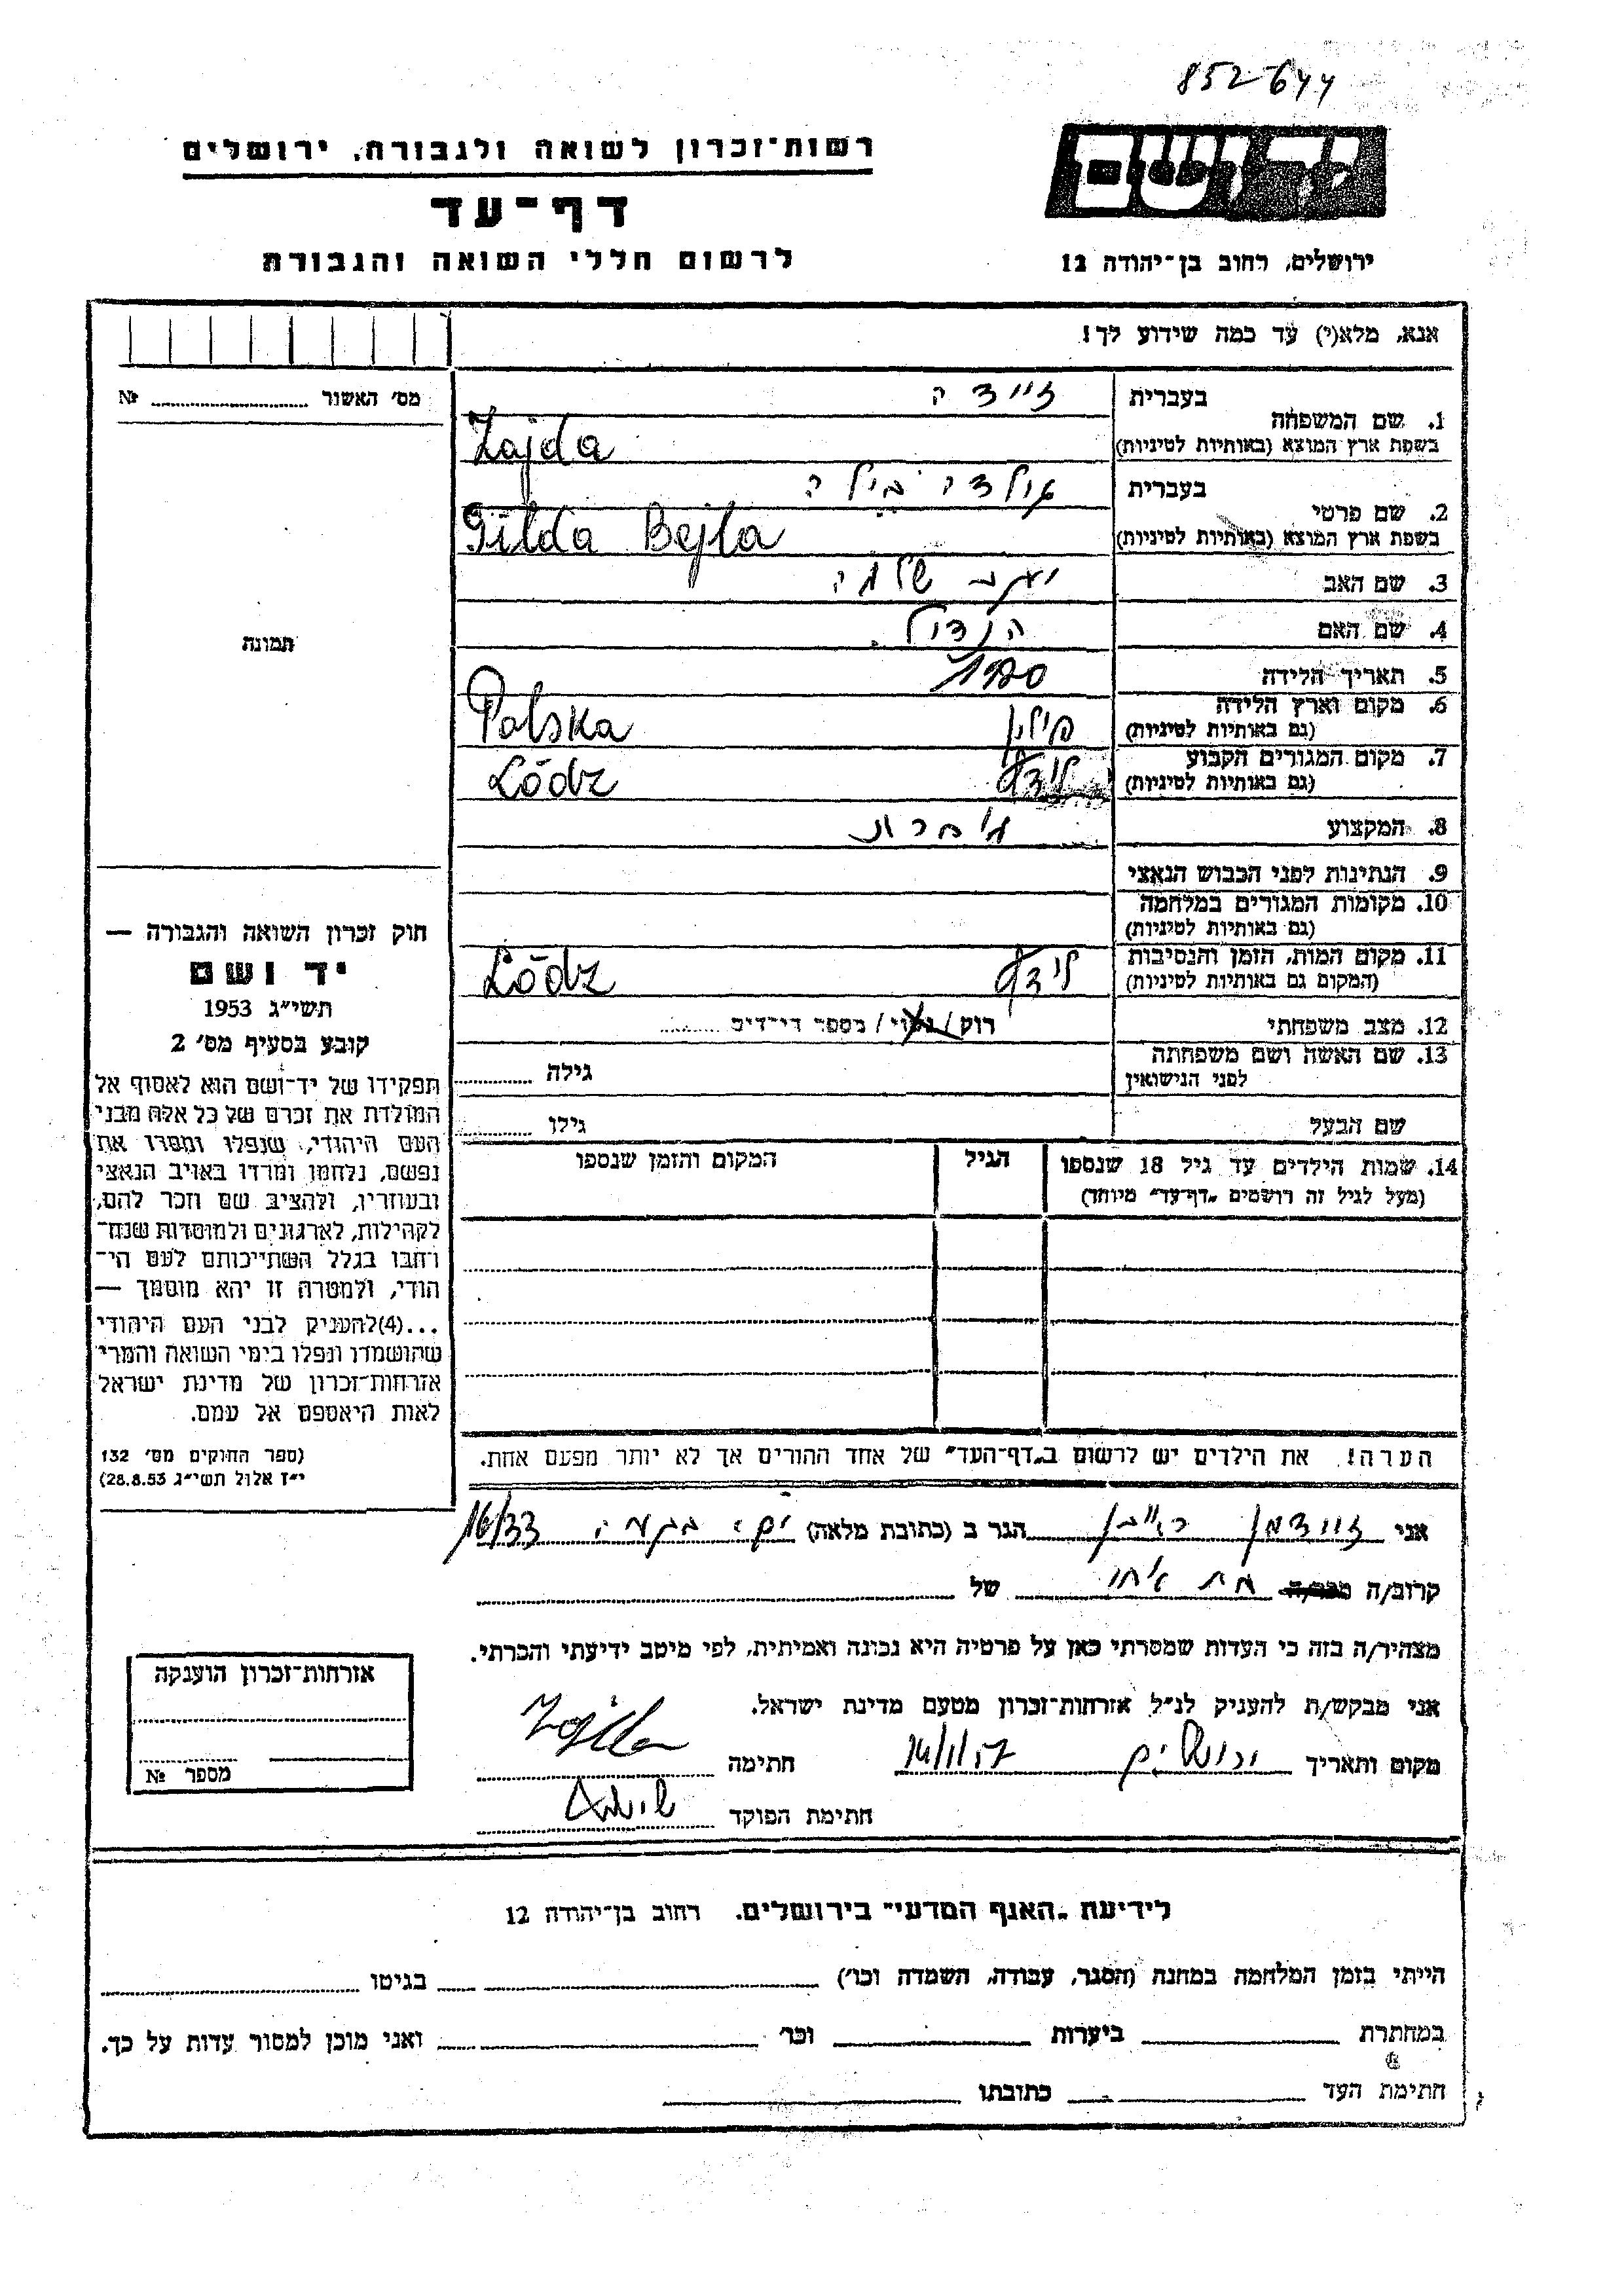 852644
רשות־זכרון לשואה ולגבורה, ירושלים
דף־עד
לרשום חללי השואה והגבורה
יד ושם
ירושלים, רחוב בן־יהודה 12
אנא, מלא(י) עד כמה שידוע לך!
מס׳ האשור № ........
תמונה
1. שם המשפחה
בעברית זיידה
בשפת ארץ המוצא (באותיות לטיניות) Zajda
2. שם פרטי
בעברית בילה
בשפת ארץ המוצא (באותיות לטיניות) Gilda Bejla
3. שם האב יעקב שלמה
4. שם האם הנדל
5. תאריך הלידה
6. מקום וארץ הלידה
(גם באותיות לטיניות) פולין Polska
7. מקום המגורים הקבוע
(גם באותיות לטיניות) לודז׳ Łódz
8. המקצוע
9. הנתינות לפני הכבוש הנאצי
10. מקומות המגורים במלחמה
(גם באותיות לטיניות)
11. מקום המות, הזמן והנסיבות
(המקום גם באותיות לטיניות) לודז׳ Łódz
12. מצב משפחתי רוק / נשוי / מספר הילדים ........
13. שם האשה ושם משפחתה
לפני הנישואין גילה ........
שם הבעל גילו ........
14. שמות הילדים עד גיל 18 שנספו
(מעל לגיל זה רושמים „דף־עד״ מיוחד)
הגיל
המקום והזמן שנספו
הערה! את הילדים יש לרשום ב„דף־העד״ של אחד ההורים אך לא יותר מפעם אחת.
חוק זכרון השואה והגבורה —
יד ושם
תשי״ג 1953
קובע בסעיף מס׳ 2
תפקידו של יד־ושם הוא לאסוף אל
המולדת את זכרם של כל אלה מבני
העם היהודי, שנפלו ומסרו את
נפשם, נלחמו ומרדו באויב הנאצי
ובעוזריו, ולהציב שם וזכר להם,
לקהילות, לארגונים ולמוסדות שנח־
רבו בגלל השתייכותם לעם הי־
הודי, ולמטרה זו יהא מוסמך —
...(4)להעניק לבני העם היהודי
שהושמדו ונפלו בימי השואה והמרי
אזרחות־זכרון של מדינת ישראל
לאות היאספם אל עמם.
(ספר החוקים מס׳ 132
י״ז אלול תשי״ג 28.8.53)
אני זיידמן ראובן הגר ב (כתובת מלאה) 16/33
קרוב/ה מכר/ה בת אחי של
מצהיר/ה בזה כי העדות שמסרתי כאן על פרטיה היא נכונה ואמיתית, לפי מיטב ידיעתי והכרתי.
אני מבקש/ת להעניק לנ״ל אזרחות־זכרון מטעם מדינת ישראל.
מקום ותאריך ירושלים 14/1/57 חתימה Zajda
חתימת הפוקד
אזרחות־זכרון הוענקה
מספר №
לידיעת „האגף המדעי״ בירושלים. רחוב בן־יהודה 12
הייתי בזמן המלחמה במחנה (הסגר, עבודה, השמדה וכו׳) ........ בגיטו ........
במחתרת ........ ביערות ........ וכו׳ ........ ואני מוכן למסור עדות על כך.
חתימת העד ........ כתובתו ........